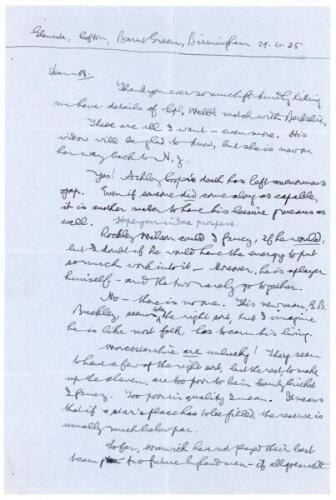 Glencoe, Cofton, Barnt Green, Birmingham 29.6.35
Dear
Thank you ever so much for kindly letting
me have details of Col. Webb's match with Berkshire,
These are all I want – even more. His
widow will be glad to know, but she is now on
her way back to N.Z.
Yes! Ashley Cooper's death has left an enormous
gap. Even if someone did come along as capable,
it is another matter to have his leisure given as
well. Hope you
Rockley Wilson could I fancy, if he would
but I doubt if he would have the energy to put
so much work into it – Moreover, he is a player
himself – and the two rarely go together.
No – there is no one. This new man, G.B.
Buckley, seems the right sort, but I imagine
he is like most folk has to earn his living.
Worcestershire are unlucky! They seem
to have a few of the right sort, but the rest, to make
up the eleven, are too poor to be in County Cricket
I fancy. Too poor in quality I mean. It means
that if a star's place has to be filled, the reserve is
usually much below par.
So far, Warwick have not played their best
team two future England men – if all goes well